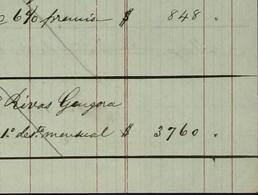 6% premio $ 848 "
Rivas Gongora
1º de 5º mensual $ 3760 "